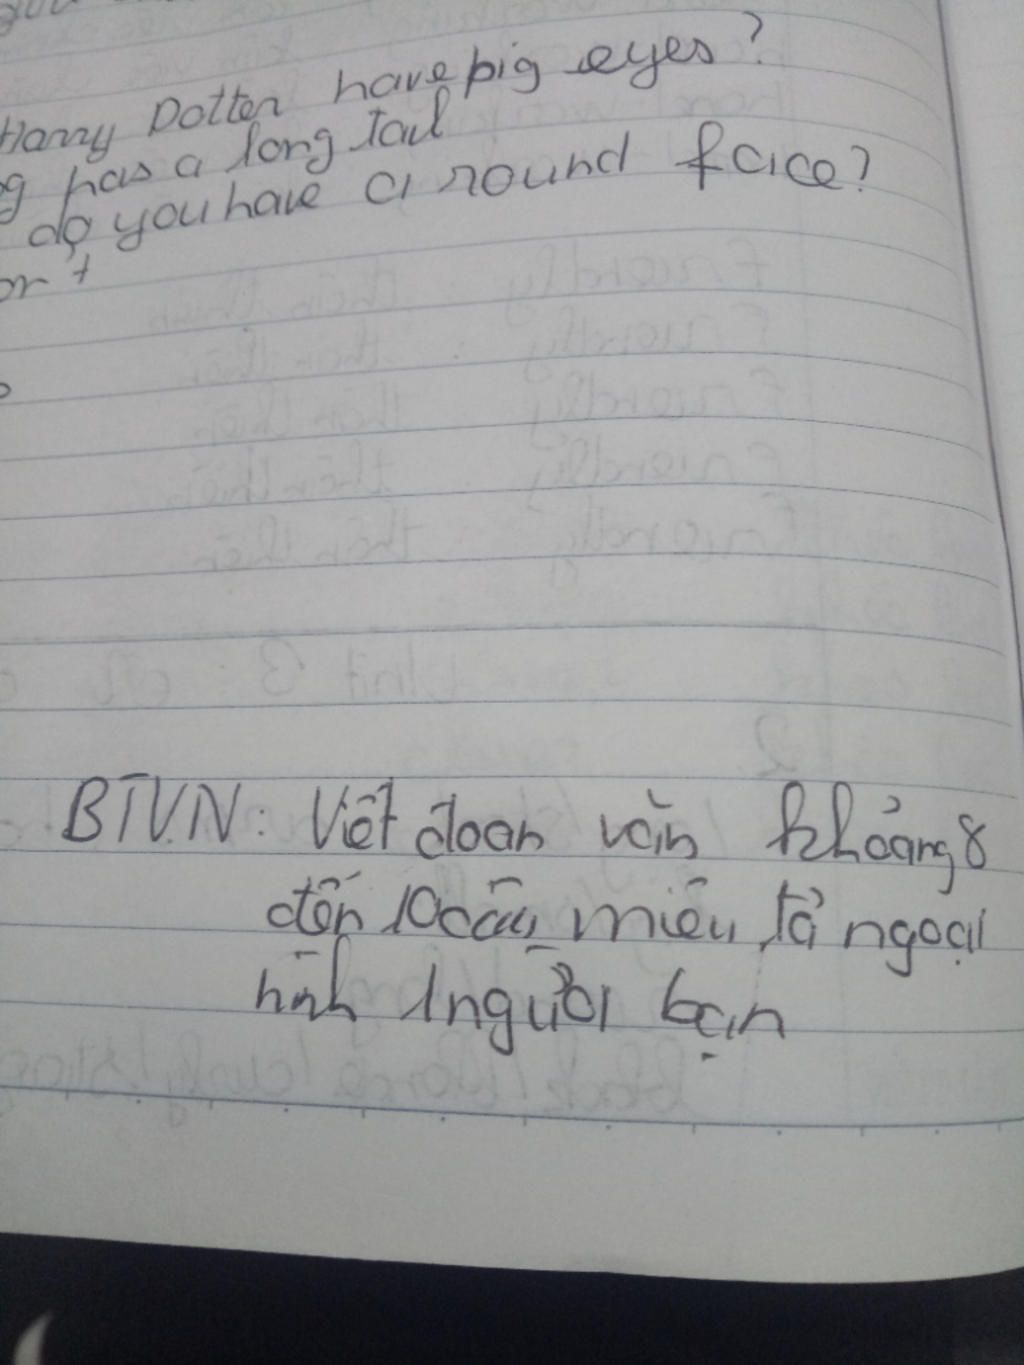 Harry Potter have big eyes?
g has a long tail
do you have a round face?
BTVN: Viết đoan văn khoảng 8
đến 10 câu miêu tả ngoại
hình 1 người bạn